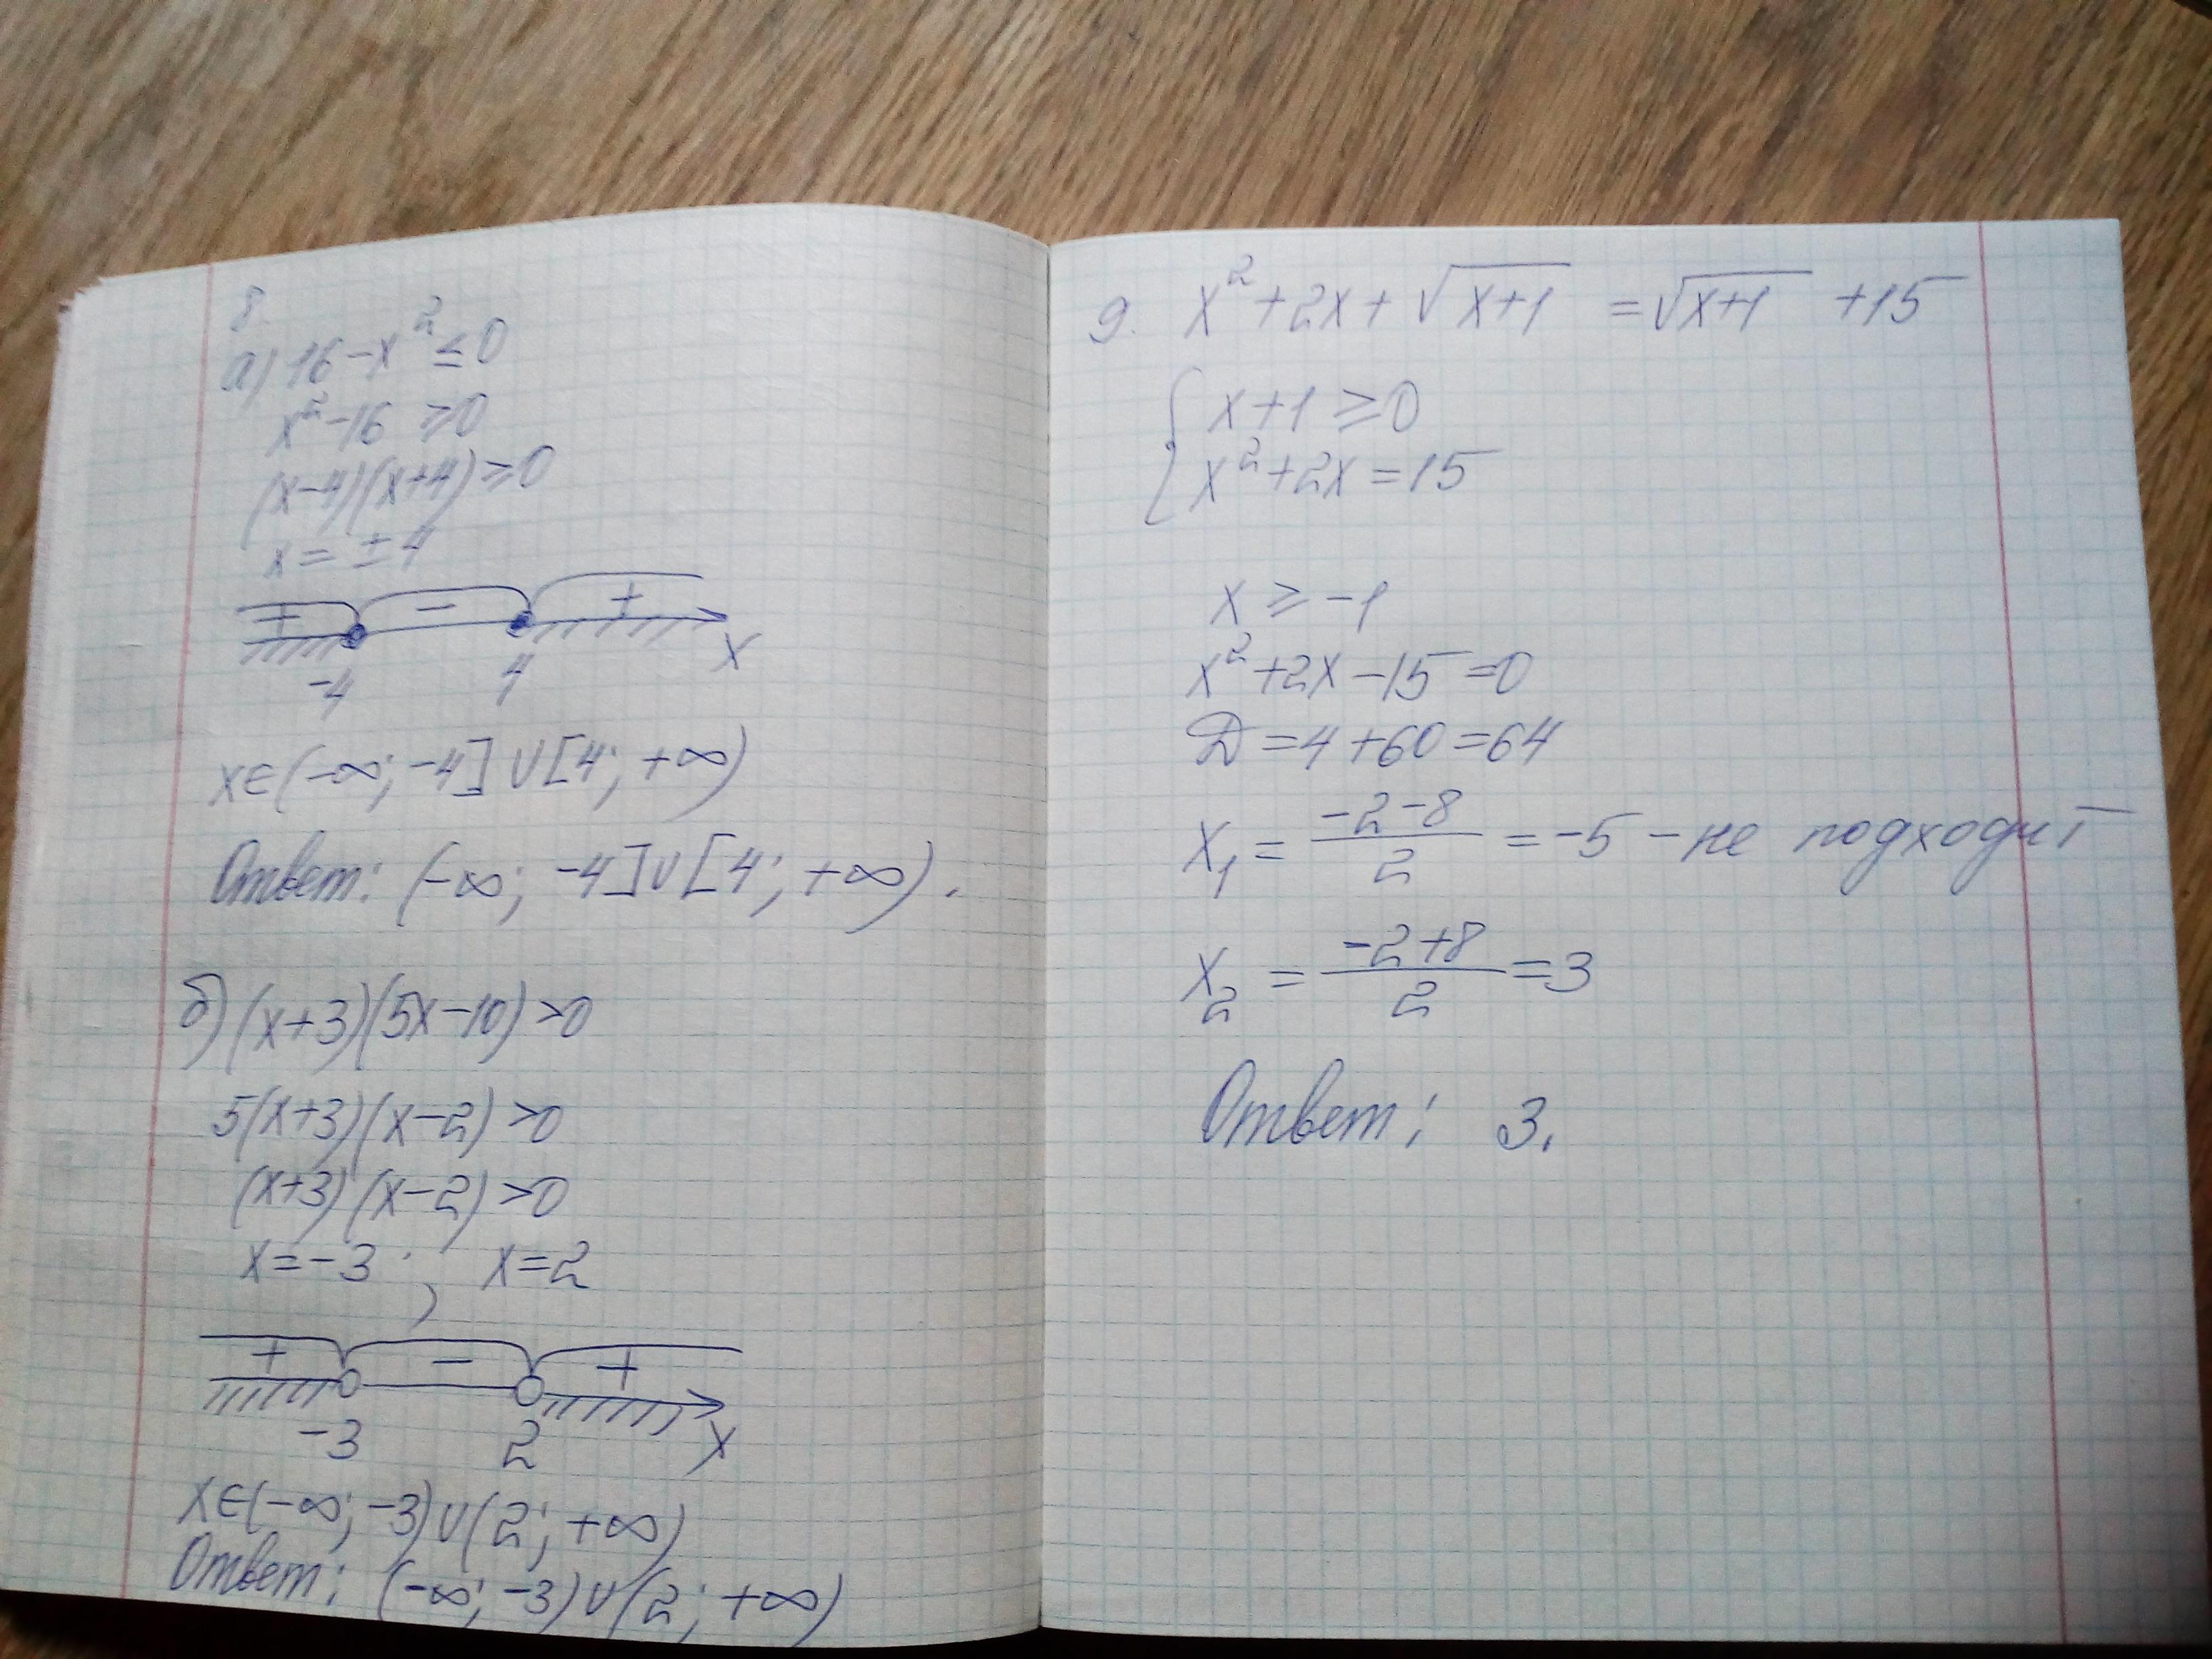 8.
а) 16-x²≤0
x²-16≥0
(x-4)(x+4)≥0
x=±4
+ - +
-4 4 x
x∈(-∞; -4]∪[4; +∞)
Ответ: (-∞; -4]∪[4; +∞).
б) (x+3)(5x-10)>0
5(x+3)(x-2)>0
(x+3)(x-2)>0
x=-3; x=2
+ - +
-3 2 x
x∈(-∞; -3)∪(2; +∞)
Ответ: (-∞; -3)∪(2; +∞)
9. x²+2x+√(x+1) =√(x+1) +15
{ x+1≥0
x²+2x=15
x≥-1
x²+2x-15=0
D=4+60=64
x₁=(-2-8)/2=-5 - не подходит
x₂=(-2+8)/2=3
Ответ: 3.